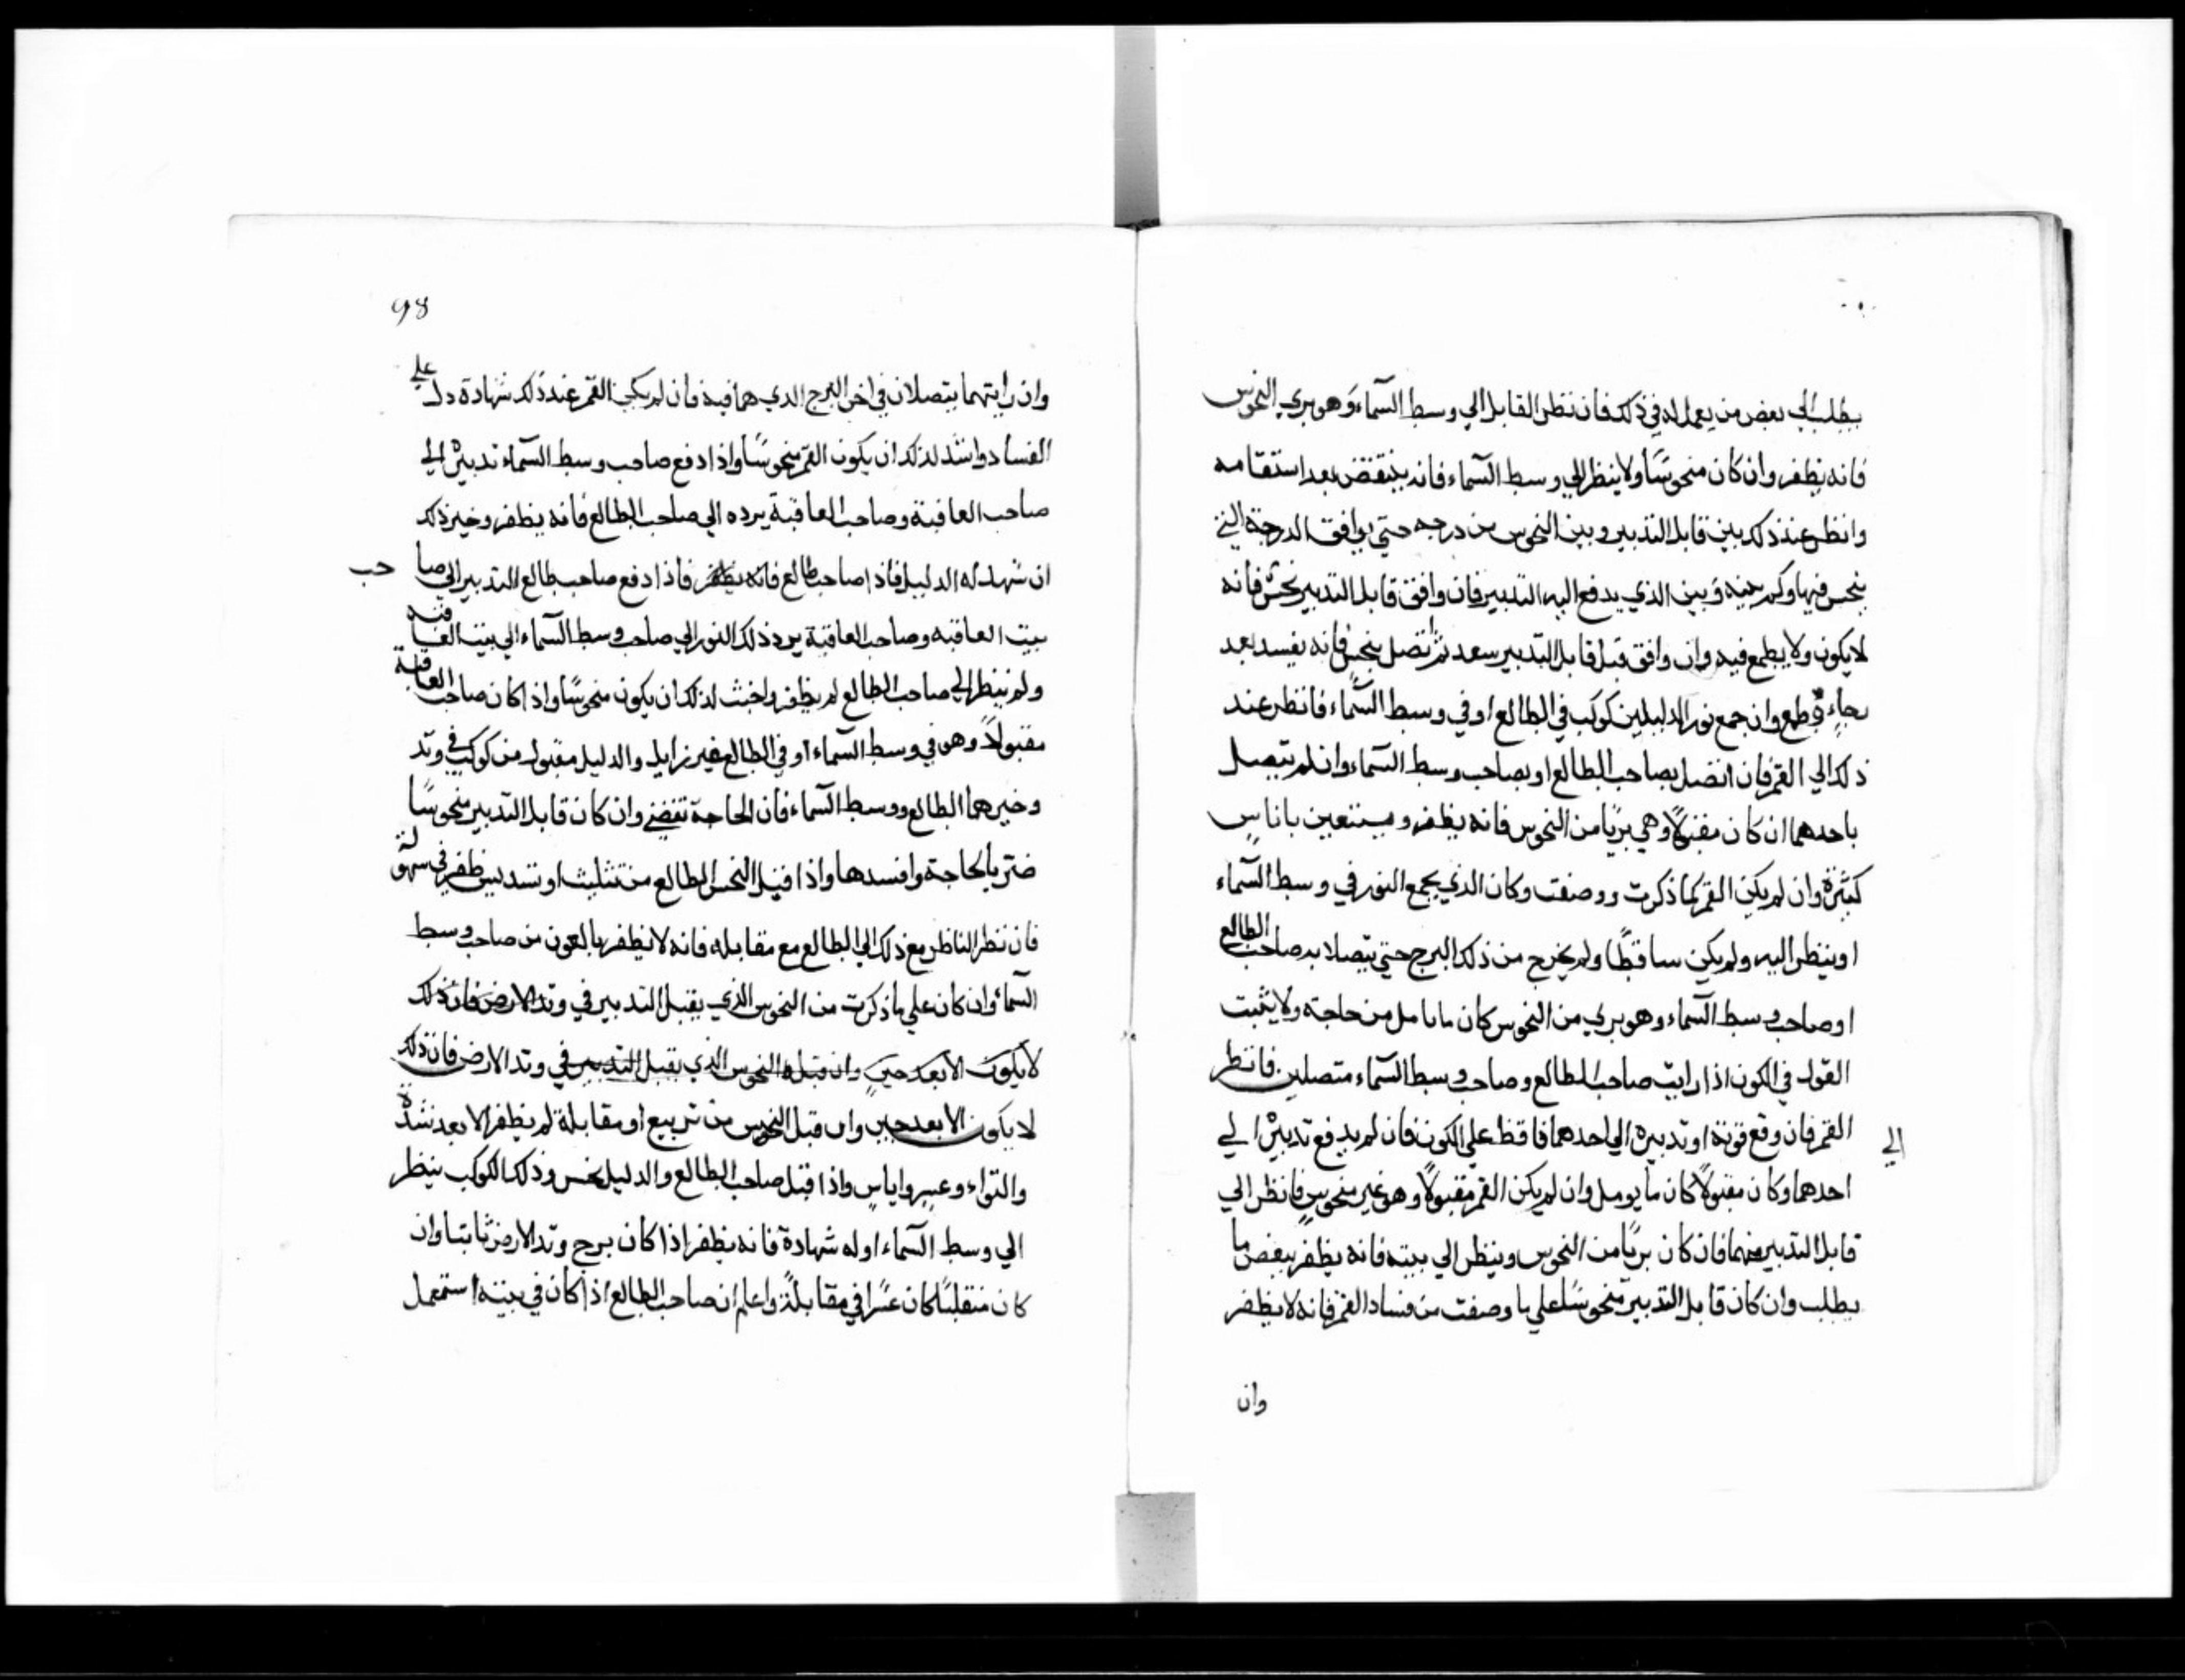 يطلب الي بعض من يعمل له في ذلك فان نظر القابل الي وسط السمآء وهو بري النحوس
فانه يظفر وان كان منحوسًا ولا ينظر الي وسط السمآء فانه ينتقض بعد استقامه
وانظر عند ذلك بين قابل التدبير وبين النحوس من درجه حتي يوافق الدرجة التي
ينحس فيها وكم بينه وبين الذي يدفع اليه التدبير فان وافق قابل التدبير نحس فانه
لا يكون ولا يطمع فيه وان وافق قبل قابل التدبير سعد ثم اتصل بنحس فانه يفسد بعد
رجاءٍ وطمع وان جمع نور الدليلين كوكب في الطالع او في وسط السمآء فانظر عند
ذلك الي القمر فان اتصل بصاحب الطالع او بصاحب وسط السمآء وان لم يتصل
باحدهما ان كان مقبولًا وهي بريًا من النحوس فانه يظفر ويستعين باناسٍ
كثيرة وان لم يكن القمر كما ذكرت ووصفت وكان الذي يجمع النور في وسط السمآء
او ينظر اليه ولم يكن ساقطًا ولم يخرج من ذلك البرج حتي يتصلا به صاحب الطالع
او صاحب وسط السمآء وهو بري من النحوس كان ما يامل من حاجته ولا يثبت
القول في الكون اذا رايت صاحب الطالع وصاحب وسط السمآء متصلين فانظر
القمر فان وقع قوته او تدبيره الي احدهما فاقض علي الكون فان لم يدفع تدبيره الي
الي
احدهما وكان مقبولًا كان ما يومل وان لم يكن القمر مقبولًا وهو غير منحوسٍ فانظر الي
قابل التدبير منهما فان كان بريًا من النحوس وينظر الي بيته فانه يظفر ببعض ما
يطلب وان كان قابل التدبير منحوسًا علي ما وصفت من فساد القمر فانه لا يظفر
وان
98
وان رايتهما يتصلان في اخر البرج الذي هما فيه فان لم يكن القمر عند ذلك شهادة دل علي
الفساد واشد لذلك ان يكون القمر منحوسًا واذا دفع صاحب وسط السمآء تدبيره الي
صاحب العاقبة وصاحب العاقبة يرده الي صاحب الطالع فانه يظفر وخير ذلك
ان شهد له الدليل فاذا صاحب طالع فانه يظفر فاذا دفع صاحب طالع التدبير الي صا حب
بيت العاقبه وصاحب العاقبة يرد ذلك النور الي صاحب وسط السمآء الي بيت العاقبه
ولم ينظر الي صاحب الطالع لم يظفر واخبث لذلك ان يكون منحوسًا واذا كان صاحب العاقبة
مقبولًا وهو في وسط السمآء او في الطالع غير زايل والدليل مقبول من كوكب في وتد
وخيرهما الطالع ووسط السمآء فان الحاجة تقضي وان كان قابل التدبير منحوسًا
ضر بالحاجة وافسدها واذا قبل النحس الطالع من تثليث او تسديس ظفر في سهولة
فان نظر الناظر مع ذلك الي الطالع مع مقابله فانه لا يظفر بالعون من صاحب وسط
السمآء وان كان علي ما ذكرت من النحوس الذي يقبل التدبير في وتد الارض فان ذلك
لا يكون الا بعد حين وان قبله النحوس الذي يقبل التدبير في وتد الارض فان ذلك
لا يكون الا بعد حين وان قبل النحوس من تربيع او مقابلة لم يظفر الا بعد شدة
والتواء وعسر واياس واذا قبل صاحب الطالع والدليل نحس وذلك الكوكب ينظر
الي وسط السمآء او له شهادة فانه يظفر اذا كان برج وتد الارض ثابتا وان
كان منقلبًا كان عسرًا في مقابلة واعلم ان صاحب الطالع اذا كان في بيته استعمل